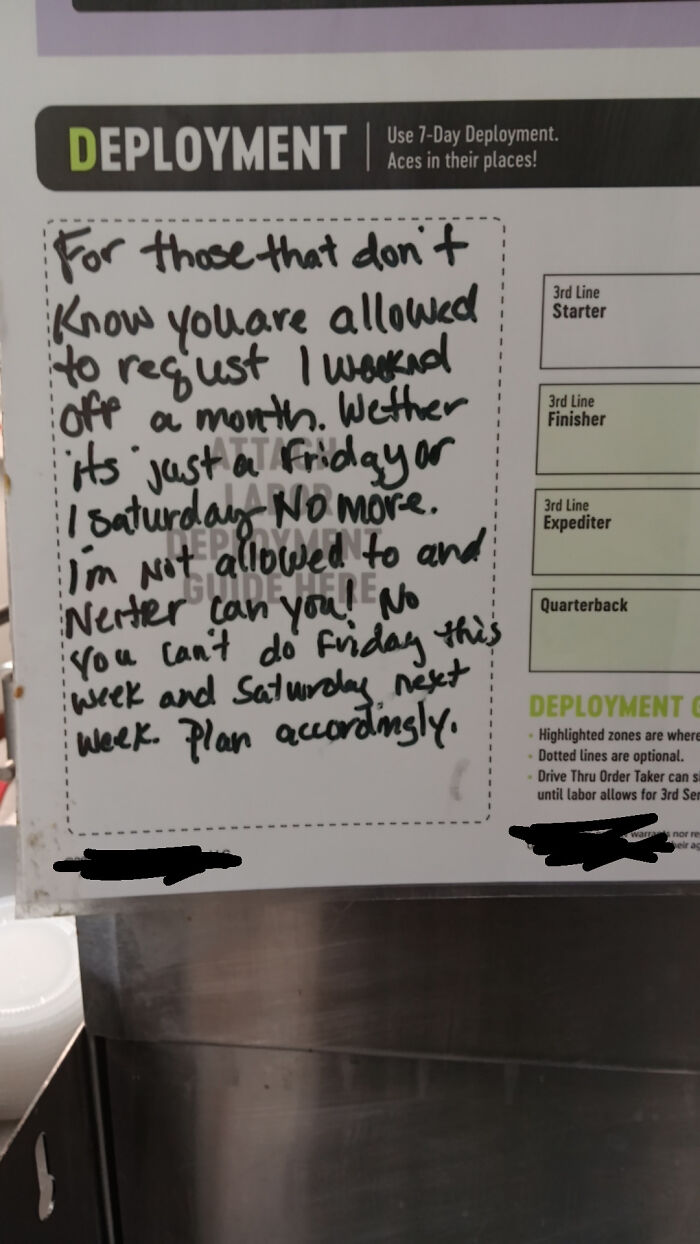 DEPLOYMENT
Use 7-Day Deployment.
Aces in their places!
For those that don't
Know you are allowed
to requst 1 weeknd
off a month. Wether
its just a Friday or
1 Saturday NO more.
I'm Not allowed to and
Neiter can you! No
You can't do Friday this
week and Saturday next
week. Plan accordingly.
ATTACH
LABOR
DEPLOYMENT
GUIDE HERE
3rd Line
Starter
3rd Line
Finisher
3rd Line
Expediter
Quarterback
DEPLOYMENT G
• Highlighted zones are where
• Dotted lines are optional.
• Drive Thru Order Taker can s
until labor allows for 3rd Ser
warrants nor re
heir ag